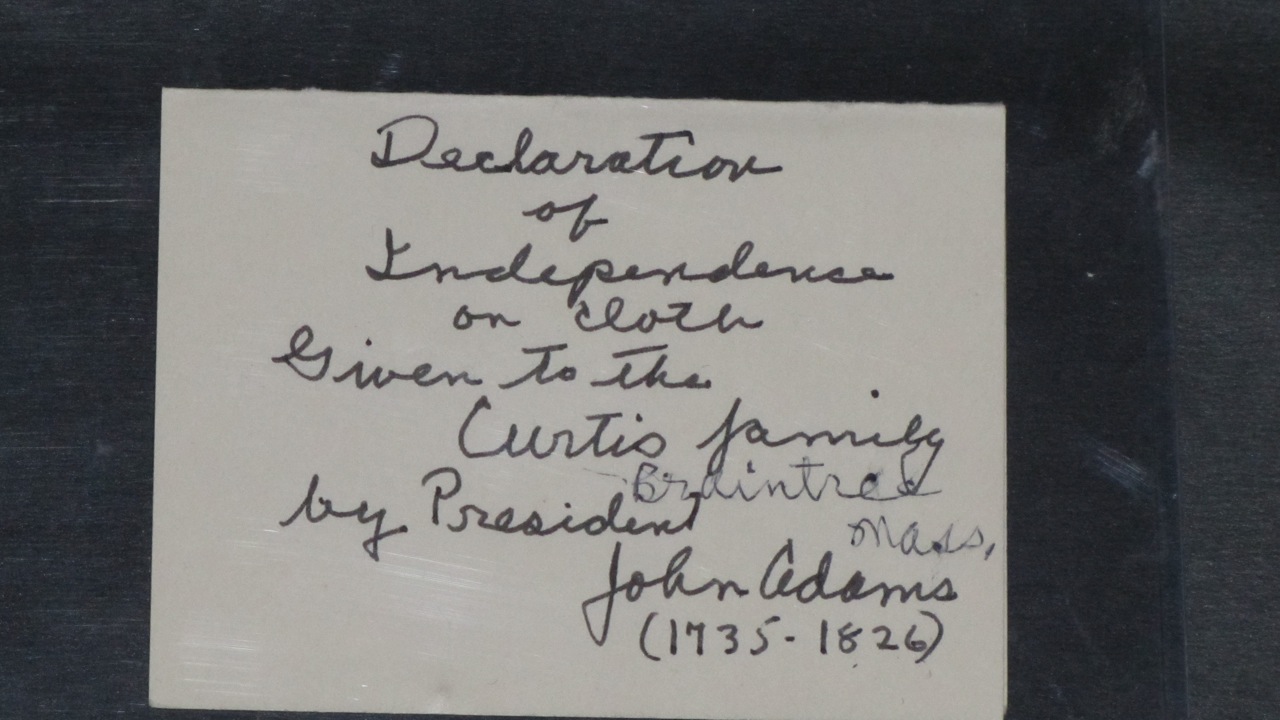 Declaration
of
Independence
on cloth
Given to the
Curtis family
Braintree
by President
Mass,
John Adams
(1735-1826)